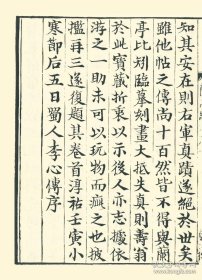 知其安在則右軍真蹟遂絕於世矣
雖他帖之傳尚十百然皆不得與蘭
亭比矧臨摹刻畫大抵失真則壽翁
於此寶藏折衷以示後人亦志據依
游之一助未可以玩物而癡之也披
攬再三遂復題其卷首淳祐壬寅小
寒節后五日蜀人李心傳序